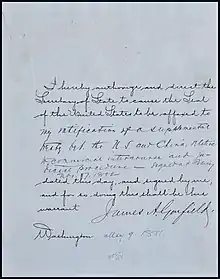 I hereby authorize and direct the
Secretary of State to cause the Seal
of the United States to be affixed to
my ratification of a supplemental
treaty bet. the U.S. and China, relative
to commercial intercourse and ju-
dicial procedure — signed at Peking
Nov. 17, 1880
dated this day, and signed by me
and for so doing this shall be his
warrant.
James A. Garfield
Washington May 9 1881.